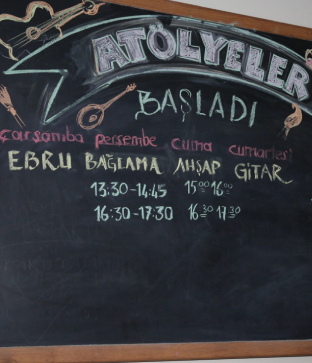 ATÖLYELER
BAŞLADI
çarşamba perşembe cuma cumartesi
EBRU BAĞLAMA AHŞAP GİTAR
13:30-14:45 15⁰⁰ 16⁰⁰
16:30-17:30 16³⁰ 17³⁰